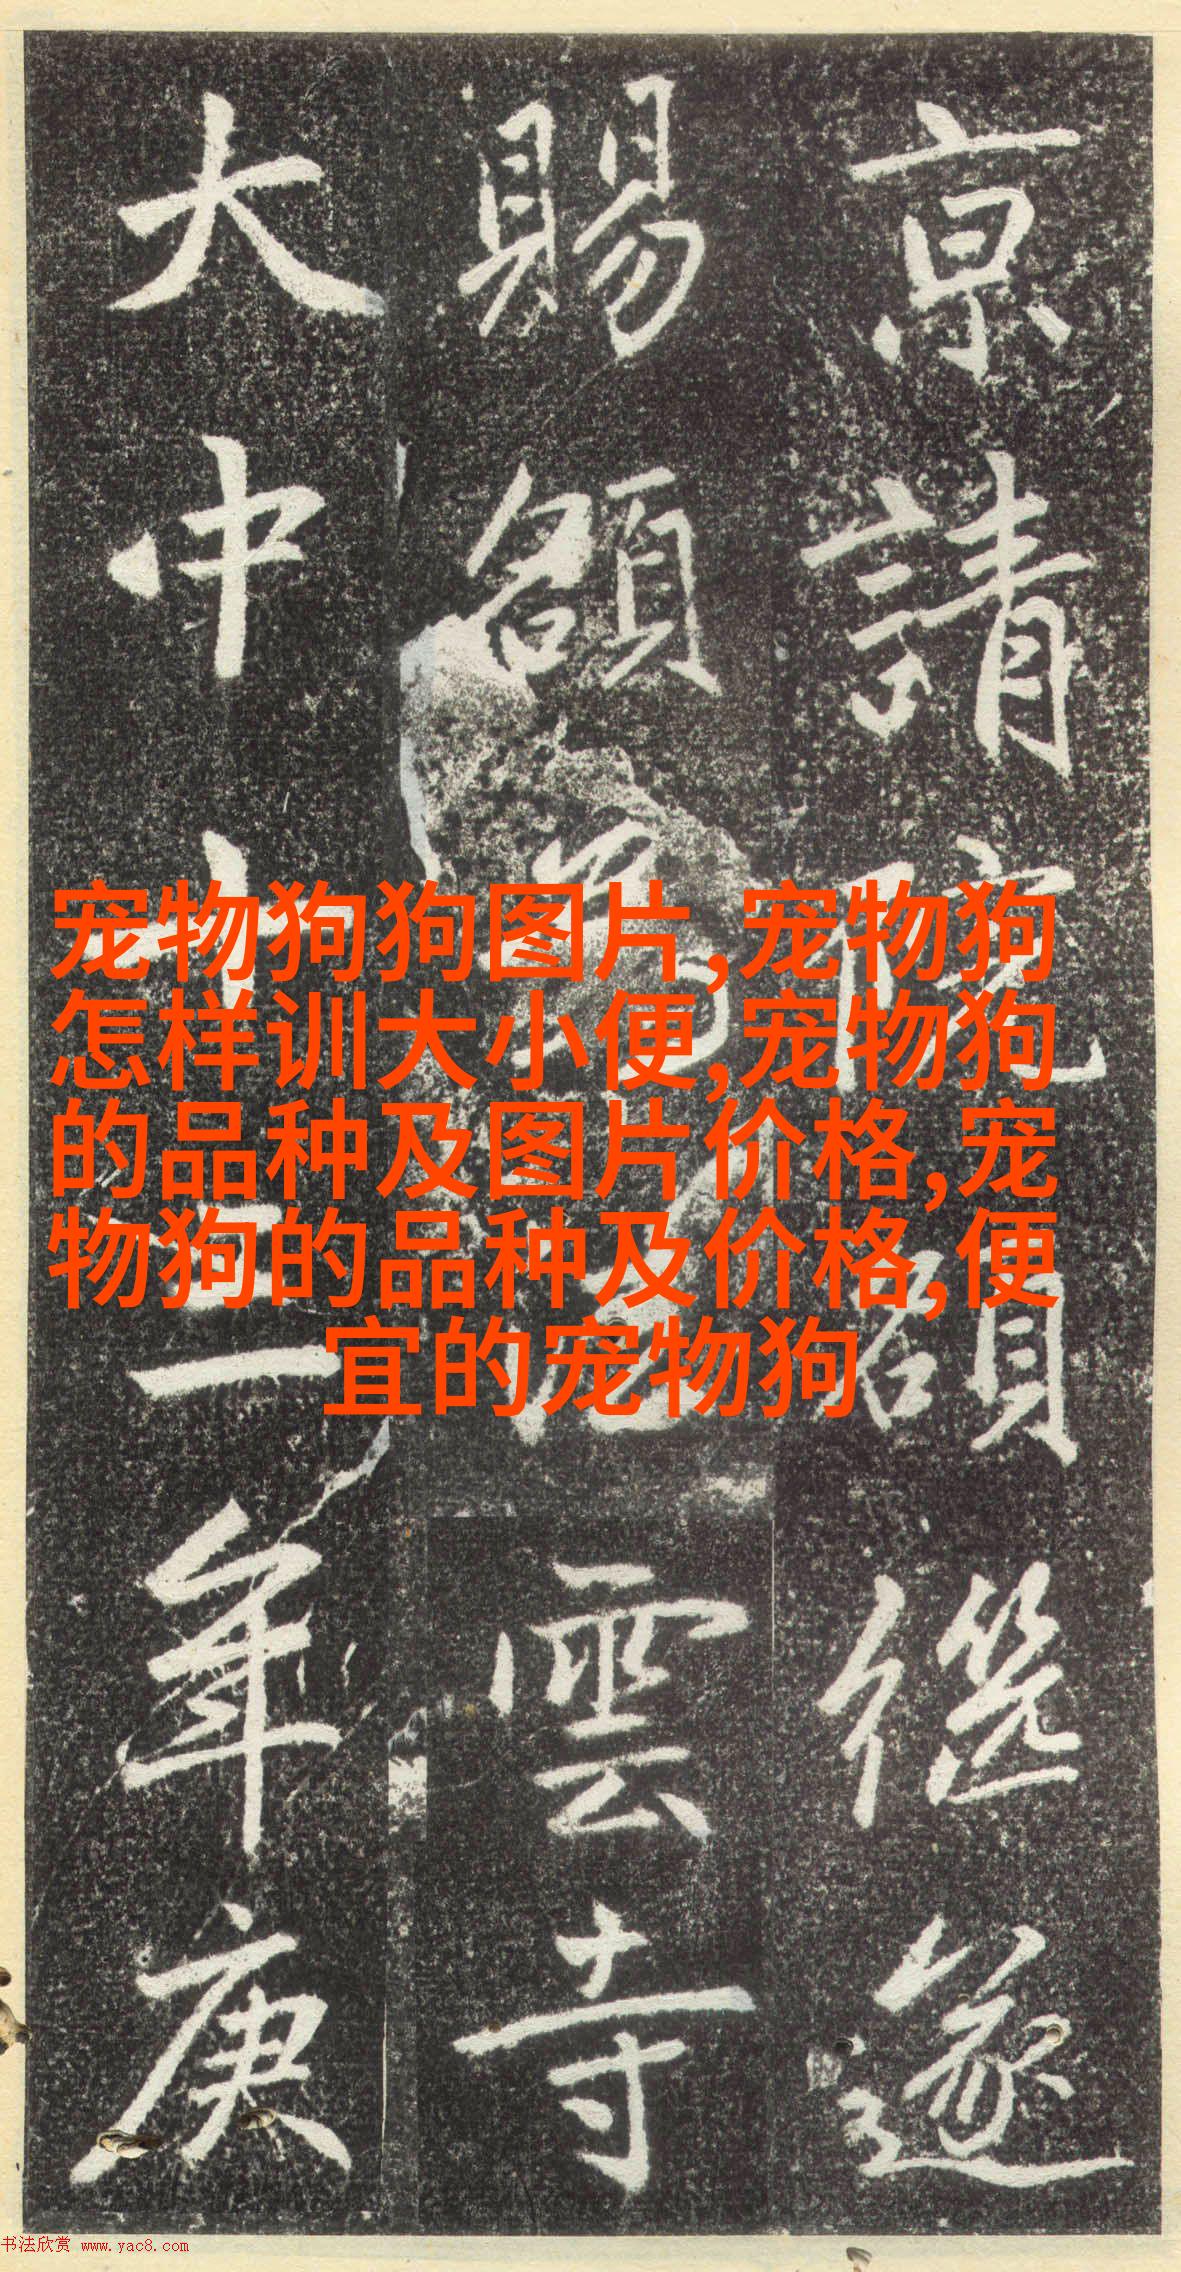 京請院額
賜額雲寺
大中年庚
宠物狗狗图片,宠物狗
怎样训大小便,宠物狗
的品种及图片价格,宠
物狗的品种及价格,便
宜的宠物狗
书法欣赏 www.yac8.com